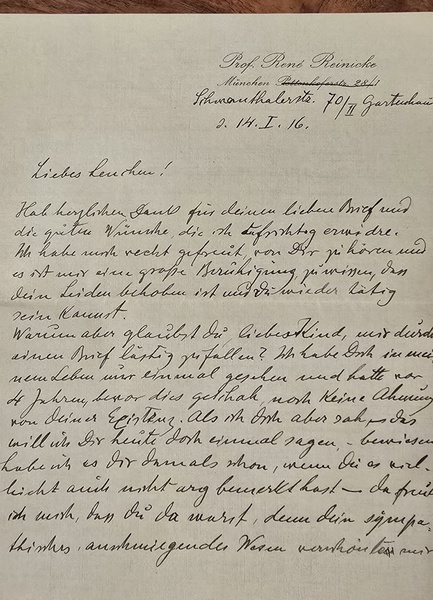 Prof. René Reinicke
München Pettenkoferstr. 28/I
Schwanthalerstr. 70/II Gartenhaus
d. 14. I. 16.
Liebes Lenchen!
Hab herzlichen Dank für deinen lieben Brief und
die guten Wünsche, die ich aufrichtig erwidre.
Ich habe mich recht gefreut, von Dir zu hören und
es ist mir eine große Beruhigung, zu wissen, dass
dein Leiden behoben ist und du wieder tätig
sein kannst.
Warum aber glaubst du, liebes Kind, mir durch
einen Brief lästig zu fallen? Ich habe Dich in mei-
nem Leben nur einmal gesehen und hatte vor
4 Jahren, bevor dies geschah, noch keine Ahnung
von deiner Existenz. Als ich dich aber sah, – das
will ich Dir heute doch einmal sagen, – bewiesen
habe ich es dir damals schon, wenn du es viel-
leicht auch nicht arg bemerkt hast – da freute
ich mich, dass du da warst, denn dein sympa-
thisches, anschmiegendes Wesen mir